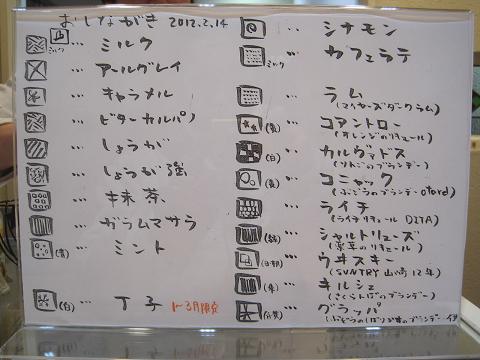 おしながき 2012.2.14
ミルク … ミルク
… アールグレイ
… キャラメル
… ビターカルパノ
… しょうが
… しょうが強
… 抹茶
… ガラムマサラ
(青) … ミント
(白) … 丁子 1~3月限定
… シナモン
ミルク … カフェラテ
… ラム
(マイヤーズダークラム)
(表) … コアントロー
(オレンジのリキュール)
(白) … カルヴァドス
(りんごのブランデー)
(表) … コニャック
(ぶどうのブランデー otard)
… ライチ
(ライチリキュール DITA)
(緑) … シャルトリューズ
(薬草のリキュール)
… ウヰスキー
(SUNTRY 山崎12年)
… キルシュ
(さくらんぼのブランデー)
… グラッパ